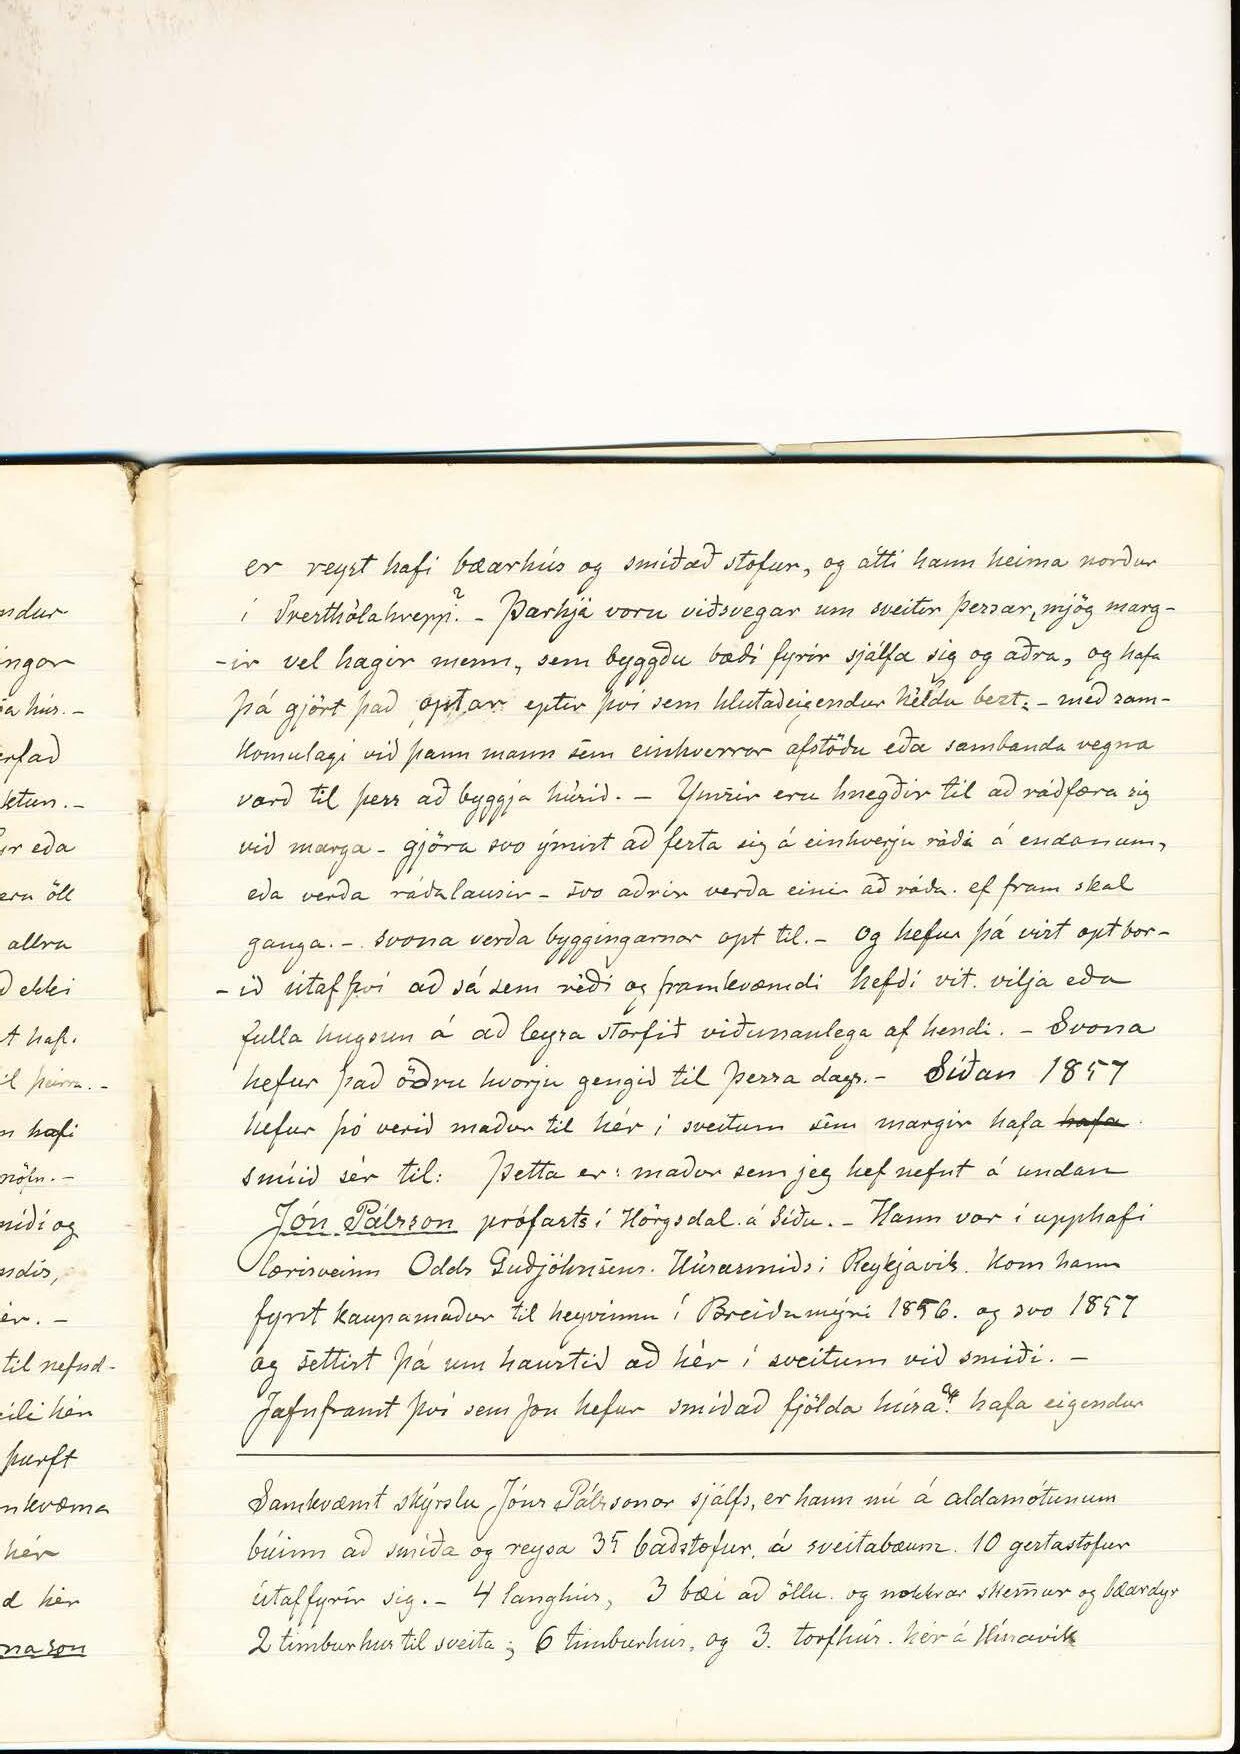 ndur
ingar
a hús. -
erfað
ktun. -
yr eða
eru öll
allra
ð ekki
t hafi.
il þeirra. -
n hafi
nöfn. -
míði og
ndís,
ér. -
til nefnd-
eili hér
þurft
nkvæma
hér
d hér
nason
er reyst hafi bæarhús og smíðað stofur, og átti hann heima norður
í Sverthólahrepp?. - Þarhjá voru viðsvegar um sveitir þessar, mjög marg-
-ir vel hagir menn, sem byggðu bæði fyrir sjálfa sig og aðra, og hafa
þá gjört það optar eptir því sem hlutaðeigendur héldu bezt; - með sam-
komulagi við þann mann sem einhverrar afstöðu eða sambanda vegna
varð til þess að byggja húsið. - Ymsir eru hnegðir til að ráðfæra sig
við marga - gjöra svo ýmist að festa sig á einhverju ráði á endanum,
eða verða ráðalausir - svo aðrir verða einir að ráða. ef fram skal
ganga. - svona verða byggingarnar opt til. - og hefur þá virt opt bor-
-ið útaf því að sá sem réði og framkvæmdi hefði vit. vilja eða
fulla hugsun á að leysa starfið viðunanlega af hendi. - Svona
hefur það öðru hvorju gengið til þessa dags. - Síðan 1857
hefur þó verið maður til hér í sveitum sem margir hafa hafa
smíið sér til: Þetta er: maður sem jeg hef nefnt á undan
Jón Pálsson prófasts í Hörgsdal á Síðu. - Hann var í upphafi
lærisveinn Odds Guðjohnsens. Húsasmiðs í Reykjavik. Kom hann
fyrst kaupamaður til heyvinnu í Breiðumýri 1856. og svo 1857
og settist þá um haustið að hér í sveitum við smíði. -
Jafnframt því sem Jón hefur smíðað fjölda húsa. hafa eigendur
Samkvæmt skýrslu Jóns Pálssonar sjálfs, er hann nú á aldamótunum
búinn að smíða og reysa 35 baðstofur, á sveitabæum. 10 gestastofur
útaffyrir sig. - 4 langhús, 3 bæi að öllu. og nokkrar skemur og bæardyr
2 timburhus til sveita; 6 timburhús, og 3. torfhús. hér á Húsavik